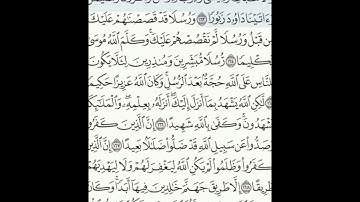 ءَاتَيْنَا دَاوُۥدَ زَبُورًا ١٦٣ وَرُسُلًا قَدْ قَصَصْنَٰهُمْ عَلَيْكَ
مِن قَبْلُ وَرُسُلًا لَّمْ نَقْصُصْهُمْ عَلَيْكَ وَكَلَّمَ ٱللَّهُ مُوسَىٰ
تَكْلِيمًا ١٦٤ رُّسُلًا مُّبَشِّرِينَ وَمُنذِرِينَ لِئَلَّا يَكُونَ
لِلنَّاسِ عَلَى ٱللَّهِ حُجَّةٌۢ بَعْدَ ٱلرُّسُلِ وَكَانَ ٱللَّهُ عَزِيزًا حَكِيمًا
لَّٰكِنِ ٱللَّهُ يَشْهَدُ بِمَآ أَنزَلَ إِلَيْكَ أَنزَلَهُۥ بِعِلْمِهِۦ وَٱلْمَلَٰٓئِكَةُ
يَشْهَدُونَ وَكَفَىٰ بِٱللَّهِ شَهِيدًا ١٦٦ إِنَّ ٱلَّذِينَ كَفَرُوا۟
وَصَدُّوا۟ عَن سَبِيلِ ٱللَّهِ قَدْ ضَلُّوا۟ ضَلَٰلًۢا بَعِيدًا ١٦٧ إِنَّ ٱلَّذِينَ
كَفَرُوا۟ وَظَلَمُوا۟ لَمْ يَكُنِ ٱللَّهُ لِيَغْفِرَ لَهُمْ وَلَا لِيَهْدِيَهُمْ
طَرِيقًا ١٦٨ إِلَّا طَرِيقَ جَهَنَّمَ خَٰلِدِينَ فِيهَآ أَبَدًا وَكَانَ